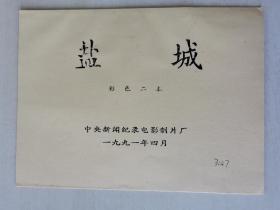 盐城
彩色二本
中央新闻纪录电影制片厂
一九九一年四月
3107